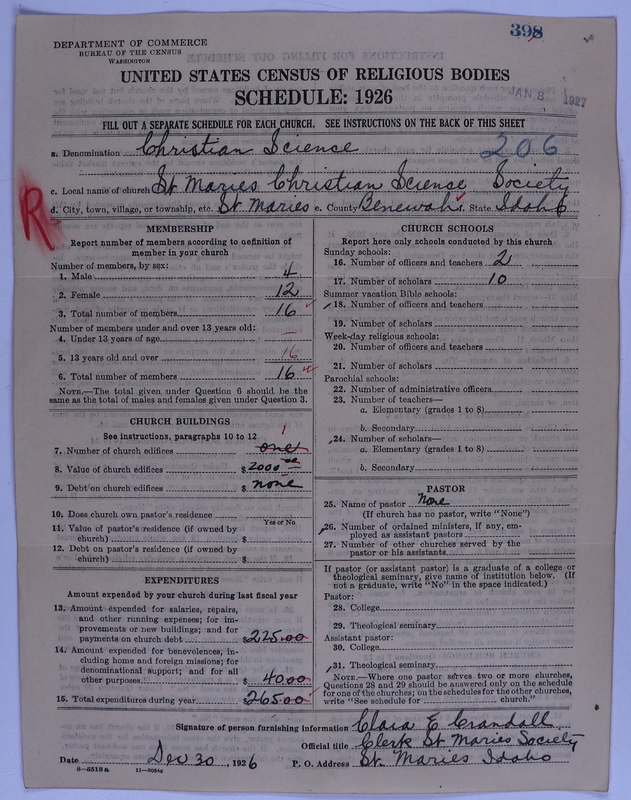 398
DEPARTMENT OF COMMERCE
BUREAU OF THE CENSUS
WASHINGTON
UNITED STATES CENSUS OF RELIGIOUS BODIES
SCHEDULE: 1926
JAN 8 1927
FILL OUT A SEPARATE SCHEDULE FOR EACH CHURCH. SEE INSTRUCTIONS ON THE BACK OF THIS SHEET
a. Denomination Christian Science 206
c. Local name of church St Maries Christian Science Society
d. City, town, village, or township, etc. St Maries e. County Benewah f. State Idaho
R
MEMBERSHIP
Report number of members according to definition of
member in your church
Number of members, by sex:
1. Male 4
2. Female 12
3. Total number of members 16
Number of members under and over 13 years old:
4. Under 13 years of age —
5. 13 years old and over 16
6. Total number of members 16
NOTE.—The total given under Question 6 should be the
same as the total of males and females given under Question 3.
CHURCH BUILDINGS
See instructions, paragraphs 10 to 12
7. Number of church edifices one 1
8. Value of church edifices $ 2000
9. Debt on church edifices $ none
10. Does church own pastor's residence
Yes or No
11. Value of pastor's residence (if owned by
church) $
12. Debt on pastor's residence (if owned by
church) $
EXPENDITURES
Amount expended by your church during last fiscal year
13. Amount expended for salaries, repairs,
and other running expenses; for im-
provements or new buildings; and for
payments on church debt $ 225.00
14. Amount expended for benevolences, in-
cluding home and foreign missions; for
denominational support; and for all
other purposes $ 40.00
15. Total expenditures during year $ 265.00
CHURCH SCHOOLS
Report here only schools conducted by this church
Sunday schools:
16. Number of officers and teachers 2
17. Number of scholars 10
Summer vacation Bible schools:
18. Number of officers and teachers
19. Number of scholars
Week-day religious schools:
20. Number of officers and teachers
21. Number of scholars
Parochial schools:
22. Number of administrative officers
23. Number of teachers—
a. Elementary (grades 1 to 8)
b. Secondary
24. Number of scholars—
a. Elementary (grades 1 to 8)
b. Secondary
PASTOR
25. Name of pastor None
(If church has no pastor, write "None")
26. Number of ordained ministers, if any, em-
ployed as assistant pastors
27. Number of other churches served by the
pastor or his assistants
If pastor (or assistant pastor) is a graduate of a college or
theological seminary, give name of institution below. (If
not a graduate, write "No" in the space indicated.)
Pastor:
28. College
29. Theological seminary
Assistant pastor:
30. College
31. Theological seminary
NOTE.—Where one pastor serves two or more churches,
Questions 28 and 29 should be answered only on the schedule
for one of the churches; on the schedules for the other churches,
write "See schedule for church."
Signature of person furnishing information Clara E Crandall
Official title Clerk St Maries Society
Date Dec 30, 1926 P. O. Address St. Maries Idaho
8—5518a 11—9054a